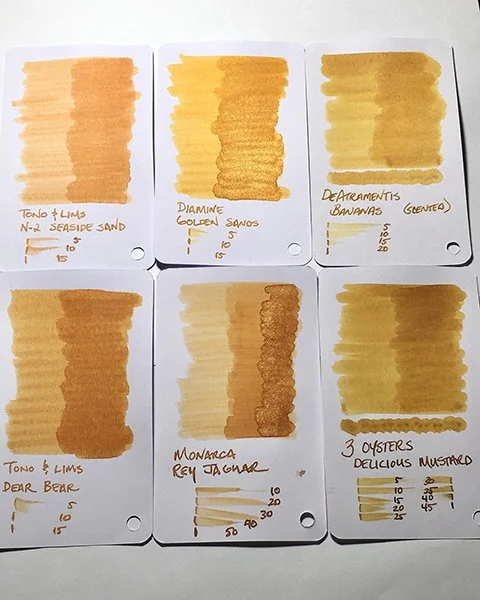 TONO & LIMS
N-2 SEASIDE SAND
5
10
15
DIAMINE
GOLDEN SANDS
5
10
15
DEATRAMENTIS
BANANAS (SCENTED)
5
10
15
20
TONO & LIMS
DEAR BEAR
5
10
15
MONARCA
REY JAGUAR
10
20
30
40
50
3 OYSTERS
DELICIOUS MUSTARD
5 30
10 35
15 40
20 45
25